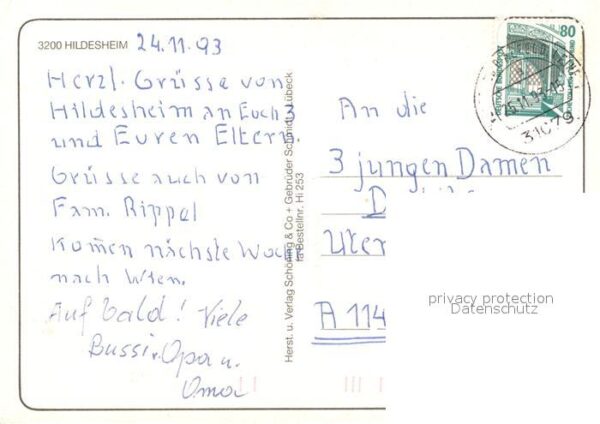 3200 HILDESHEIM
24.11.93
Herzl. Grüsse von
Hildesheim an Euch 3
und Euren Eltern.
Grüsse auch von
Fam. Rippel
Kom̄en nächste Woch
nach Wien.
Auf bald! Viele
Bussi, Opa u.
Oma
Herst. u. Verlag Schöning & Co + Gebrüder Schmidt, Lübeck
Bestellnr. Hi 253
80
31079
An die
3 jungen Damen
D
A 114
privacy protection
Datenschutz